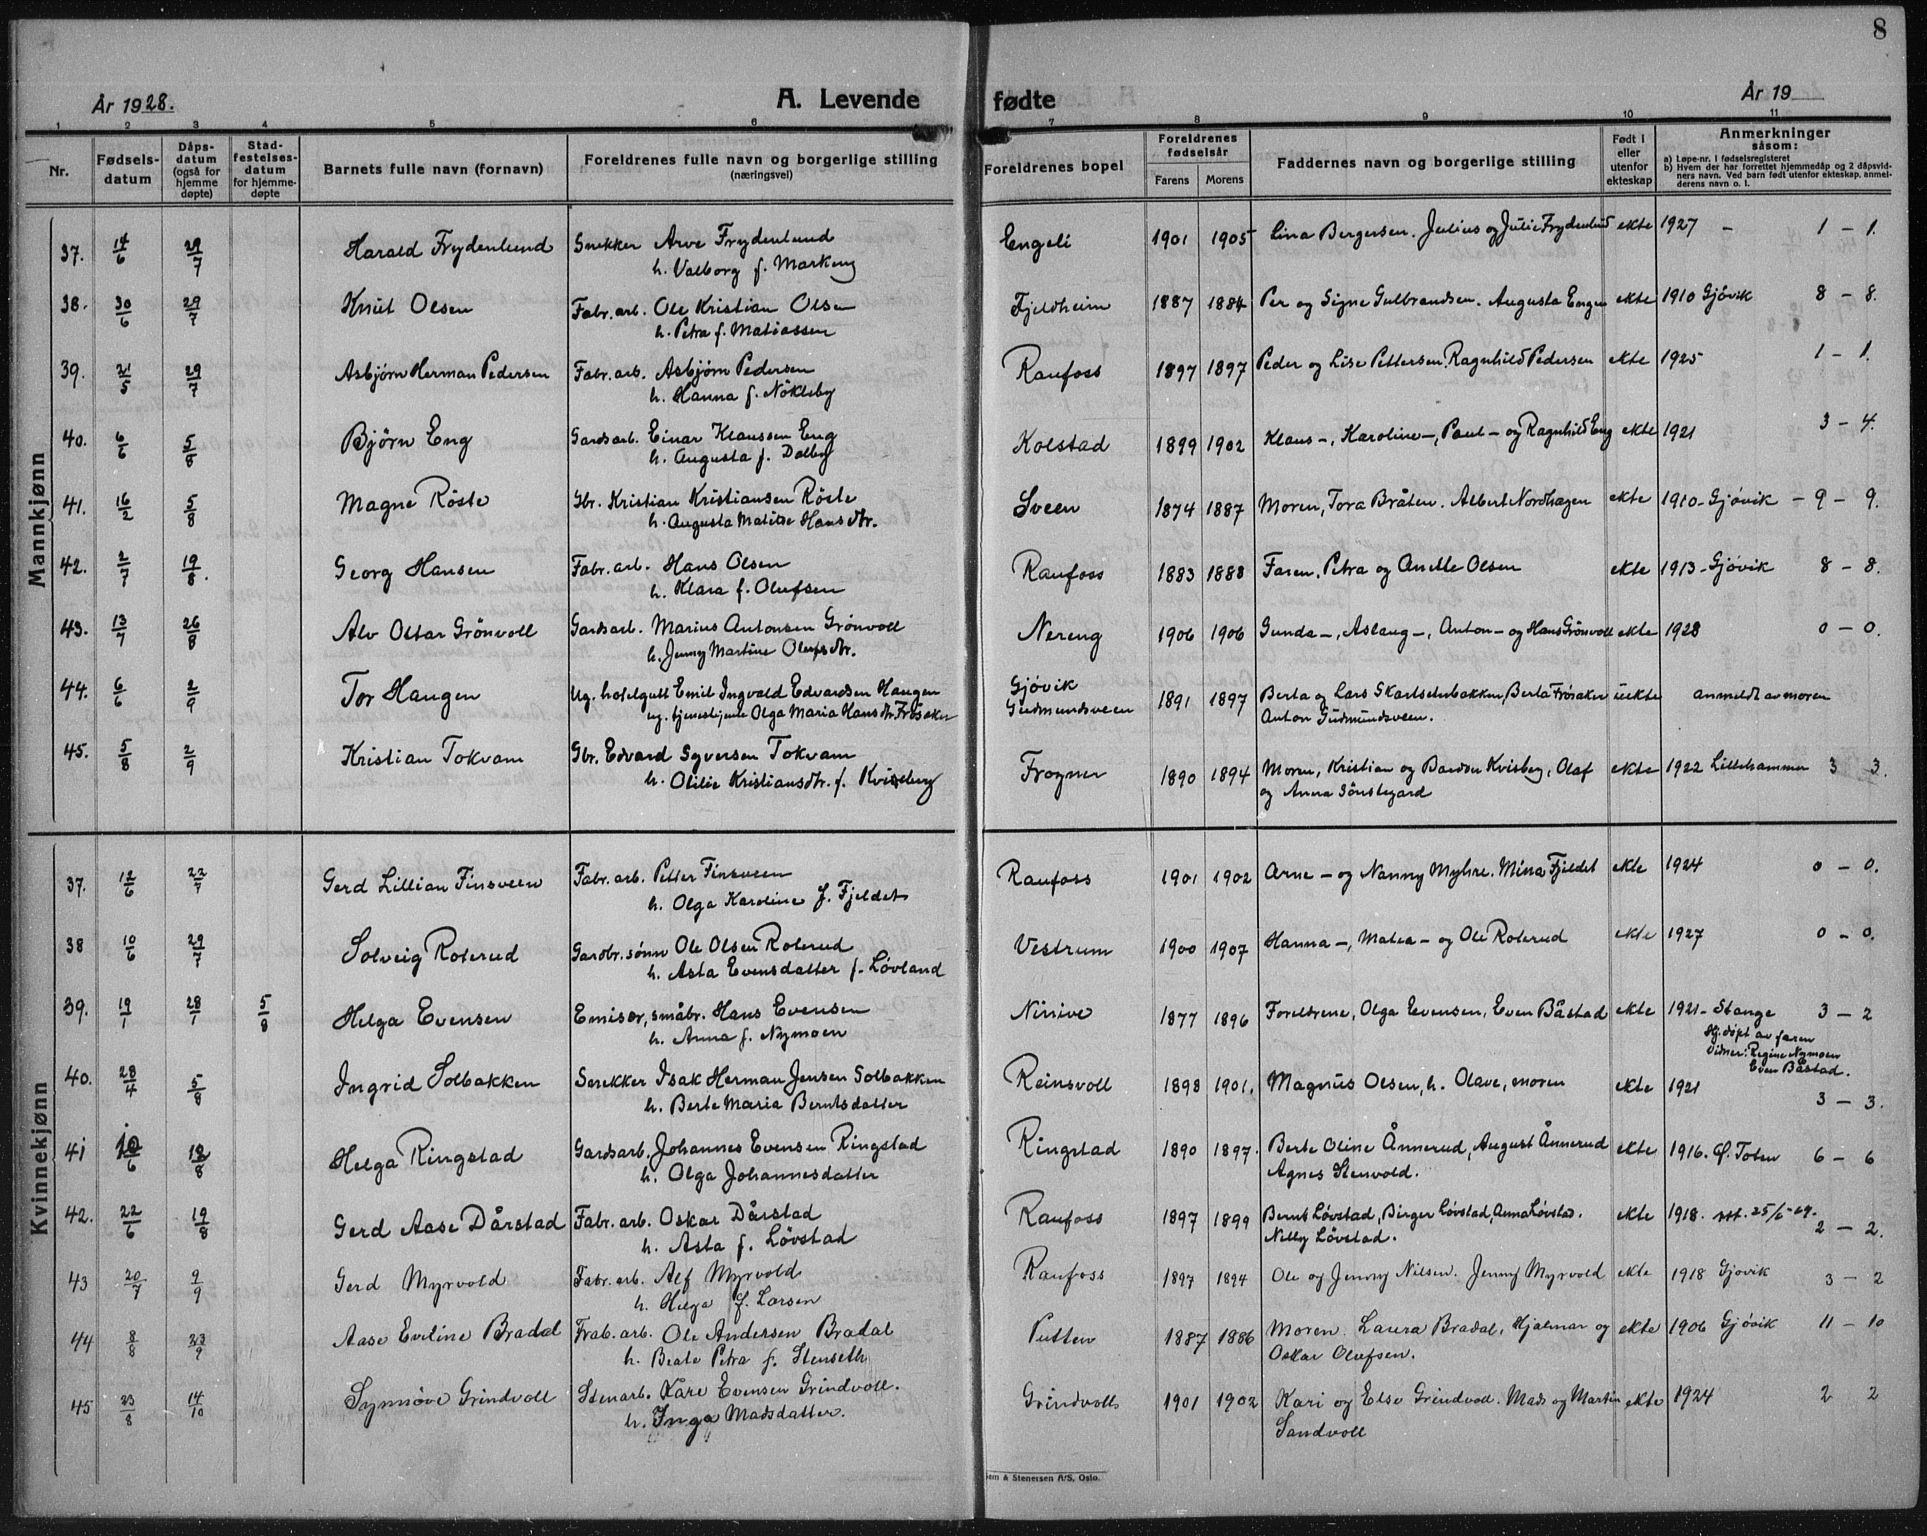 8
År 1928. A. Levende fødte År 19
1 2 3 4 5 6 7 8 9 10 11
Nr. Fødselsdatum Dåpsdatum (også for hjemme døpte) Stadfestelsesdatum for hjemmedøpte Barnets fulle navn (fornavn) Foreldrenes fulle navn og borgerlige stilling (næringsvei) Foreldrenes bopel Foreldrenes fødselsår Farens Morens Faddernes navn og borgerlige stilling Født i eller utenfor ekteskap Anmerkninger såsom: a) Løpe-nr. i fødselsregisteret b) Hvem der har forrettet hjemmedåp og 2 dåpsvidners navn. Ved barn født utenfor ekteskap, anmelderens navn o. l.
Mannkjønn
37. 14/6 29/7 Harald Frydenlund Snekker Arve Frydenlund Engeli 1901 1905 Lina Bergersen. Julius og Julie Frydenlund ekte 1927 – 1 – 1.
h. Valborg f. Markeng
38. 30/6 29/7 Knut Olsen Fabr. arb. Ole Kristian Olsen Fjeldheim 1887 1884 Per og Signe Gulbrandsen. Augusta Engen ekte 1910 Gjøvik 8 – 8.
h. Petra f. Matiassen
39. 21/5 29/7 Asbjørn Herman Pedersen Fabr. arb. Asbjørn Pedersen Raufoss 1897 1897 Peder og Lise Pettersen, Ragnhild Pedersen ekte 1925 1 – 1.
h. Hanna f. Nökleby
40. 6/6 5/8 Bjørn Eng Gardsarb. Einar Klaussen Eng Kolstad 1899 1902 Klaus –, Karoline –, Paul – og Ragnhild Eng ekte 1921 3 – 4.
h. Augusta f. Dalby
41. 16/2 5/8 Magne Röste Gbr. Kristian Kristiansen Röste Sveen 1874 1887 Moren, Tora Bråten. Albert Nordhagen ekte 1910 – Gjøvik – 9 – 9.
h. Augusta Matilde Hansdtr.
42. 2/7 19/8. Georg Hansen Fabr. arb. Hans Olsen Raufoss 1883 1888 Faren, Petra og Anette Olsen ekte 1913 – Gjøvik 8 – 8.
h. Klara f. Olufsen
43. 13/7 26/8 Alv Ottar Grönvoll Gardsarb. Marius Antonsen Grönvoll Nereng 1906 1906 Gunda –, Aslaug –, Anton – og Hans Grönvoll ekte 1928 0 – 0.
h. Jenny Martine Olufsdtr.
44. 6/6 2/9 Tor Haugen Ug. hotelgutt Emil Ingvald Edvardsen Haugen Gjøvik 1891 1897 Berta og Lars Skartseterbakken, Berta Frösaker uekte anmeldt av moren
ug. tjenestejente Olga Maria Hansdtr. Frösaker Gudmundsveen Anton Gudmundsveen.
45. 5/8 2/9 Kristian Tokvam Gbr. Edvard Syversen Tokvam Frogner 1890 1894 Moren, Kristian og Bardon Kvisberg, Olaf ekte 1922 Lillehammer 3 3.
h. Otilie Kristiansdtr. f. Kvisberg og Anna Sönstegard
Kvinnekjønn
37. 12/6 22/7 Gerd Lillian Finsveen Fabr. arb. Petter Finsveen Raufoss 1901 1902 Arne – og Nanny Myhre. Mina Fjeldet ekte 1924 0 – 0.
h. Olga Karoline f. Fjeldet
38 10/6 29/7 Solveig Roterud Gardbr. sønn Ole Olsen Roterud Vestrum 1900 1907 Hanna –, Matea – og Ole Roterud ekte 1927 0 – 0.
h. Asta Evensdatter f. Løvland
39. 19/1 28/1 5/8 Helga Evensen Emisær, småbr. Hans Evensen Ninive 1877 1896 Foreldrene, Olga Evensen, Even Båstad ekte 1921 – Stange 3 – 2
h. Anna f. Nymoen Hj. döpt av faren
Vidner: Regine Nymoen
Even Båstad.
40. 28/4 5/8 Ingrid Solbakken Snekker Isak Herman Jensen Solbakken Reinsvoll 1898 1901. Magnus Olsen, h. Olave, moren ekte 1921 3 – 3.
h. Berte Maria Berntsdatter
41 10/6 12/8 Helga Ringstad Gardsarb. Johannes Evensen Ringstad Ringstad 1890 1897. Berte Oline Ånnerud, August Ånnerud ekte 1916. Ø. Toten 6 – 6
h. Olga Johannesdatter Agnes Stenvold.
42. 22/6 19/8 Gerd Aase Dårstad Fabr. arb. Oskar Dårstad Raufoss 1897 1899 Bernt Løvstad, Birger Løvstad, Anna Løvstad. ekte 1918. att. 25/6-69. 2 – 2.
h. Asta f. Løvstad Nelly Løvstad.
43 20/7 9/9 Gerd Myrvold Fabr. arb. Alf Myrvold Raufoss 1897 1894 Ole og Jenny Nilsen. Jenny Myrvold ekte 1918 Gjøvik 3 – 2
h. Helga f. Larsen
44 8/8 23/9 Aase Eveline Bradal Frab. arb. Ole Andersen Bradal Putten 1887 1886 Moren. Laura Bradal, Hjalmar og ekte 1906 Gjøvik 11 – 10
h. Beate Petra f. Stenseth Oskar Olufsen.
45 23/8 14/10 Synnöve Grindvoll Stenarb. Kåre Evensen Grindvoll. Grindvoll 1901 1902 Kari og Else Grindvoll. Mads og Martin ekte 1924 2 2
h. Inga Madsdatter. Sandvoll
& Stenersen A/S, Oslo.